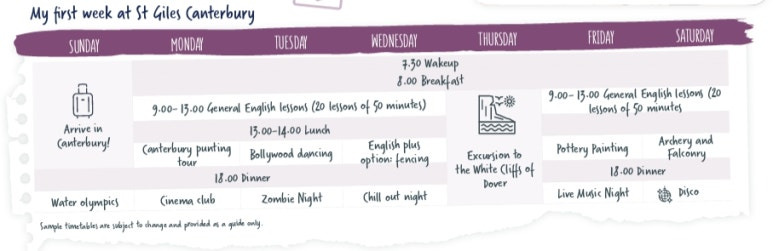 My first week at St Giles Canterbury
SUNDAY MONDAY TUESDAY WEDNESDAY THURSDAY FRIDAY SATURDAY
7.30 Wakeup
8.00 Breakfast
9.00- 13.00 General English lessons (20 lessons of 50 minutes)
9.00- 13.00 General English lessons (20
lessons of 50 minutes
Arrive in
Canterbury!
13.00-14.00 Lunch
Canterbury punting
tour
Bollywood dancing
English plus
option: fencing
Excursion to
the White Cliffs of
Dover
Pottery Painting
Archery and
Falconry
18.00 Dinner
18.00 Dinner
Water olympics
Cinema club
Zombie Night
Chill out night
Live Music Night
Disco
Sample timetables are subject to change and provided as a guide only.